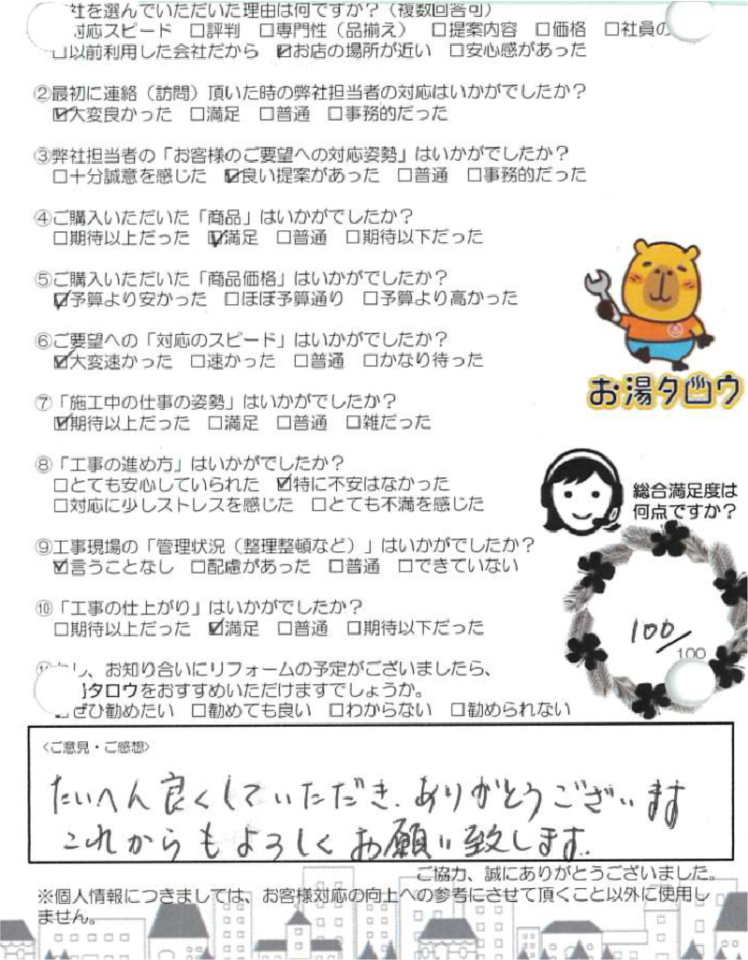 社を選んでいただいた理由は何ですか？（複数回答可）
対応スピード □評判 □専門性（品揃え） □提案内容 □価格 □社員の
□以前利用した会社だから ☑お店の場所が近い □安心感があった
②最初に連絡（訪問）頂いた時の弊社担当者の対応はいかがでしたか？
☑大変良かった □満足 □普通 □事務的だった
③弊社担当者の「お客様のご要望への対応姿勢」はいかがでしたか？
□十分誠意を感じた ☑良い提案があった □普通 □事務的だった
④ご購入いただいた「商品」はいかがでしたか？
□期待以上だった ☑満足 □普通 □期待以下だった
⑤ご購入いただいた「商品価格」はいかがでしたか？
☑予算より安かった □ほぼ予算通り □予算より高かった
⑥ご要望への「対応のスピード」はいかがでしたか？
☑大変速かった □速かった □普通 □かなり待った
お湯タロウ
⑦「施工中の仕事の姿勢」はいかがでしたか？
☑期待以上だった □満足 □普通 □雑だった
⑧「工事の進め方」はいかがでしたか？
□とても安心していられた ☑特に不安はなかった
□対応に少しストレスを感じた □とても不満を感じた
総合満足度は
何点ですか？
⑨工事現場の「管理状況（整理整頓など）」はいかがでしたか？
☑言うことなし □配慮があった □普通 □できていない
⑩「工事の仕上がり」はいかがでしたか？
□期待以上だった ☑満足 □普通 □期待以下だった
100/
100
し、お知り合いにリフォームの予定がございましたら、
タロウをおすすめいただけますでしょうか。
ぜひ勧めたい □勧めても良い □わからない □勧められない
<ご意見・ご感想>
たいへん良くしていただき、ありがとうございます
これからもよろしくお願い致します。
ご協力、誠にありがとうございました。
※個人情報につきましては、お客様対応の向上への参考にさせて頂くこと以外に使用し
ません。